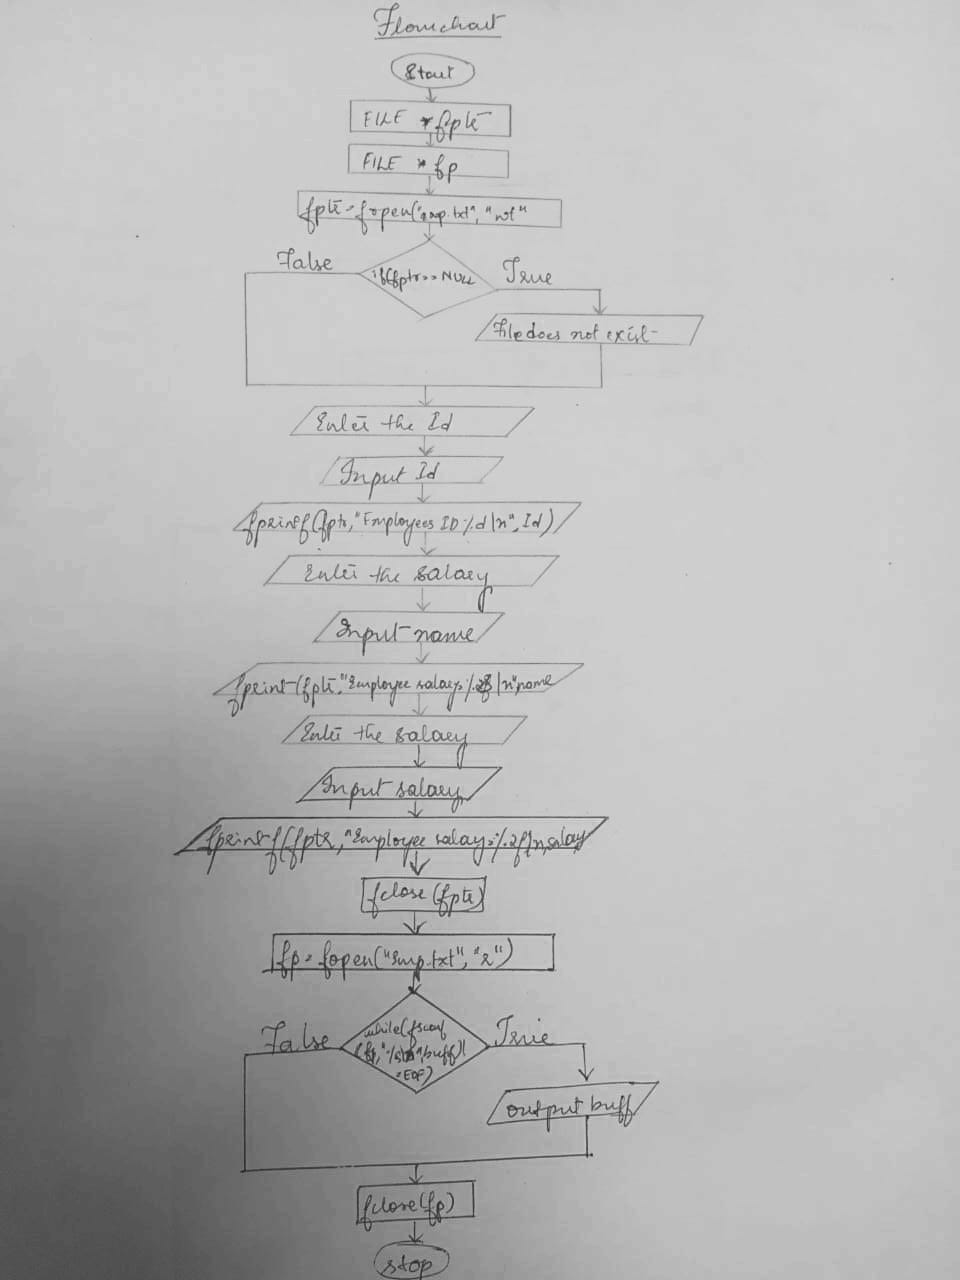 Flowchart
Start
FILE *fptr
FILE *fp
fptr=fopen("emp.txt", "wt"
False
if(fptr==NULL
True
File does not exist
Enter the Id
Input Id
fprintf(fptr,"Employees ID:%d\n",Id)
Enter the salary
Input name
fprint(fptr,"Employee salary:%\n"name
Enter the salary
Input salary
fprintf(fptr,"Employee salary:%.2f\n,salay
fclose(fptr)
fp=fopen("Emp.txt","r")
False
while(fscanf
True
(fp,"%s",buff)!
=EOF)
output buff
fclose(fp)
stop